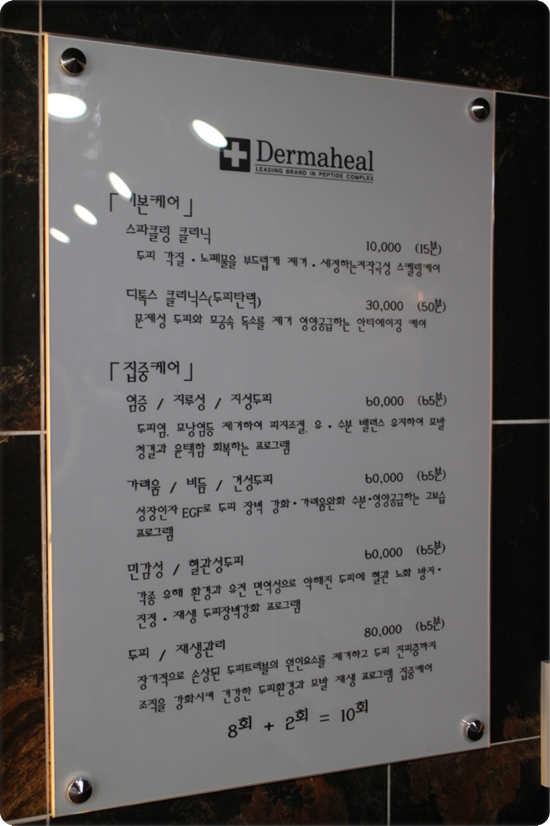 Dermaheal
LEADING BRAND IN PEPTIDE COMPLEX
「기본케어」
스파클링 클리닉 10,000 (15분)
두피 각질·노폐물을 부드럽게 제거·세정하는저작극성 스켈링케어
디톡스 클리닉스(두피탄력) 30,000 (50분)
문제성 두피와 모공속 독소를 제거 영양공급하는 안티에이징 케어
「집중케어」
염증 / 지루성 / 지성두피 60,000 (65분)
두피염, 모낭염등 제거하여 피지조절, 유·수분 밸런스 유지하여 모발
청결과 윤택함 회복하는 프로그램
가려움 / 비듬 / 건성두피 60,000 (65분)
성장인자 EGF로 두피 장벽 강화·가려움완화 수분·영양공급하는 고보습
프로그램
민감성 / 혈관성두피 60,000 (65분)
각종 유해 환경과 유전 면역성으로 약해진 두피에 혈관 노화 방지·
진정·재생 두피장벽강화 프로그램
두피 / 재생관리 80,000 (65분)
장기적으로 손상된 두피트러블의 원인요소를 제거하고 두피 진피층까지
조직을 강화시켜 건강한 두피환경과 모발 재생 프로그램 집중케어
8회 + 2회 = 10회